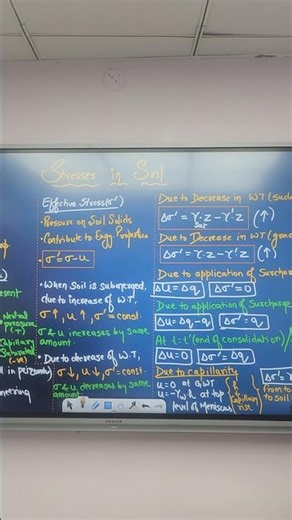 Stresses in Soil
Effective Stress(σ')
• Pressure on Soil Solids
• Contribute to Engg Properties
• σ' = σ - u
• When Soil is submerged,
due to increase of W.T,
σ↑, u↑, σ' = const.
σ & u increases by same
amount.
• Due to decrease of W.T,
σ↓, u↓, σ' = const.
σ & u decreases by same
amount.
Due to Decrease in WT
Δσ' = γsat·z - γ'z (↑)
Due to Decrease in WT
Δσ' = γ·z - γ'z (↑)
Due to application of Surcharge
ΔU = Δq Δσ' = 0
Due to application of Surcharge
ΔU = Δq - q Δσ' = q
At t = t' (end of consolidation)
ΔU = 0 Δσ' = Δq
Due to capillarity
u = 0 at WT
u = -γw·h at top
level of Meniscus
Capillary
rise
from
to soil
Δσ' =
esent
Neutral
pressure
(+)
Capillary
Saturated
(-ve)
neering